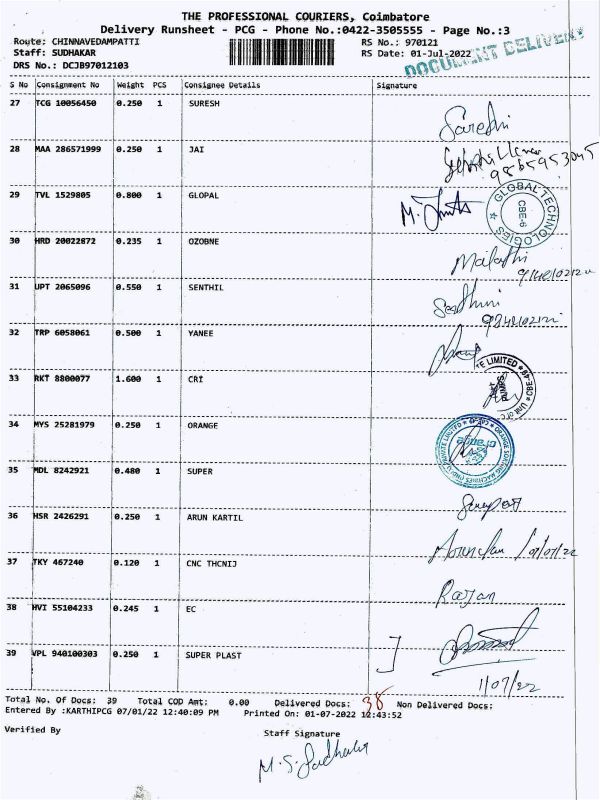 THE PROFESSIONAL COURIERS, Coimbatore
Delivery Runsheet - PCG - Phone No.:0422-3505555 - Page No.:3
Route: CHINNAVEDAMPATTI RS No.: 970121
Staff: SUDHAKAR RS Date: 01-Jul-2022
DRS No.: DCJB97012103
DOCUMENT DELIVERY
S No Consignment No Weight PCS Consignee Details Signature
27 TCG 10056450 0.250 1 SURESH
Suresh
28 MAA 286571999 0.250 1 JAI
9865953045
29 TVL 1529805 0.800 1 GLOPAL
GLOBAL TECHNOLOGIES
CBE-6
30 HRD 20022872 0.235 1 OZOBNE
Malathi
31 UPT 2065096 0.550 1 SENTHIL
32 TRP 6058061 0.500 1 YANEE
33 RKT 8800077 1.600 1 CRI
34 MYS 25281979 0.250 1 ORANGE
ORANGE SORTING MACHINES (INDIA) PRIVATE LIMITED
35 MDL 8242921 0.480 1 SUPER
36 HSR 2426291 0.250 1 ARUN KARTIL
1/07/22
37 TKY 467240 0.120 1 CNC THCNIJ
Rajan
38 HVI 55104233 0.245 1 EC
39 VPL 940100303 0.250 1 SUPER PLAST
1/07/22
Total No. Of Docs: 39 Total COD Amt: 0.00 Delivered Docs: 38 Non Delivered Docs:
Entered By :KARTHIPCG 07/01/22 12:40:09 PM Printed On: 01-07-2022 12:43:52
Verified By Staff Signature